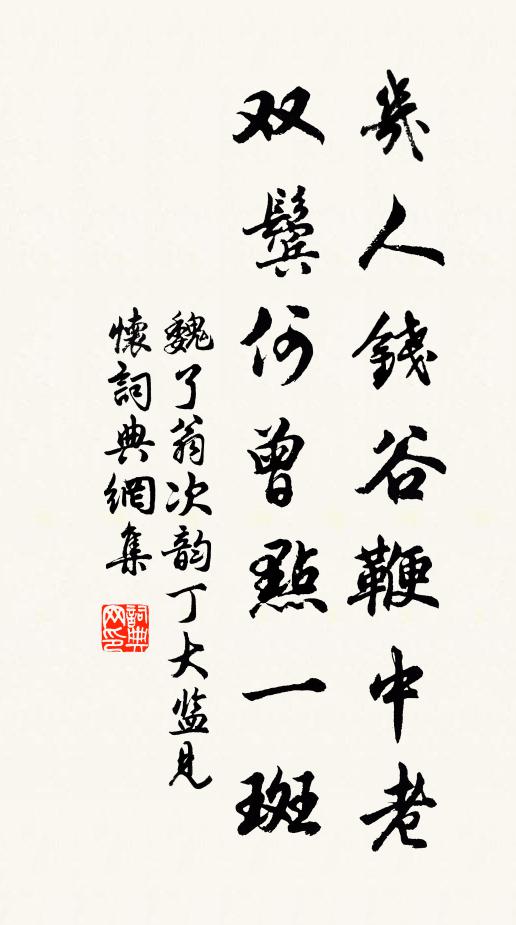 幾人錢谷鞭中老
双鬢何曾點一斑
魏了翁次韵丁大监見
懷詞典網集
詞典网印